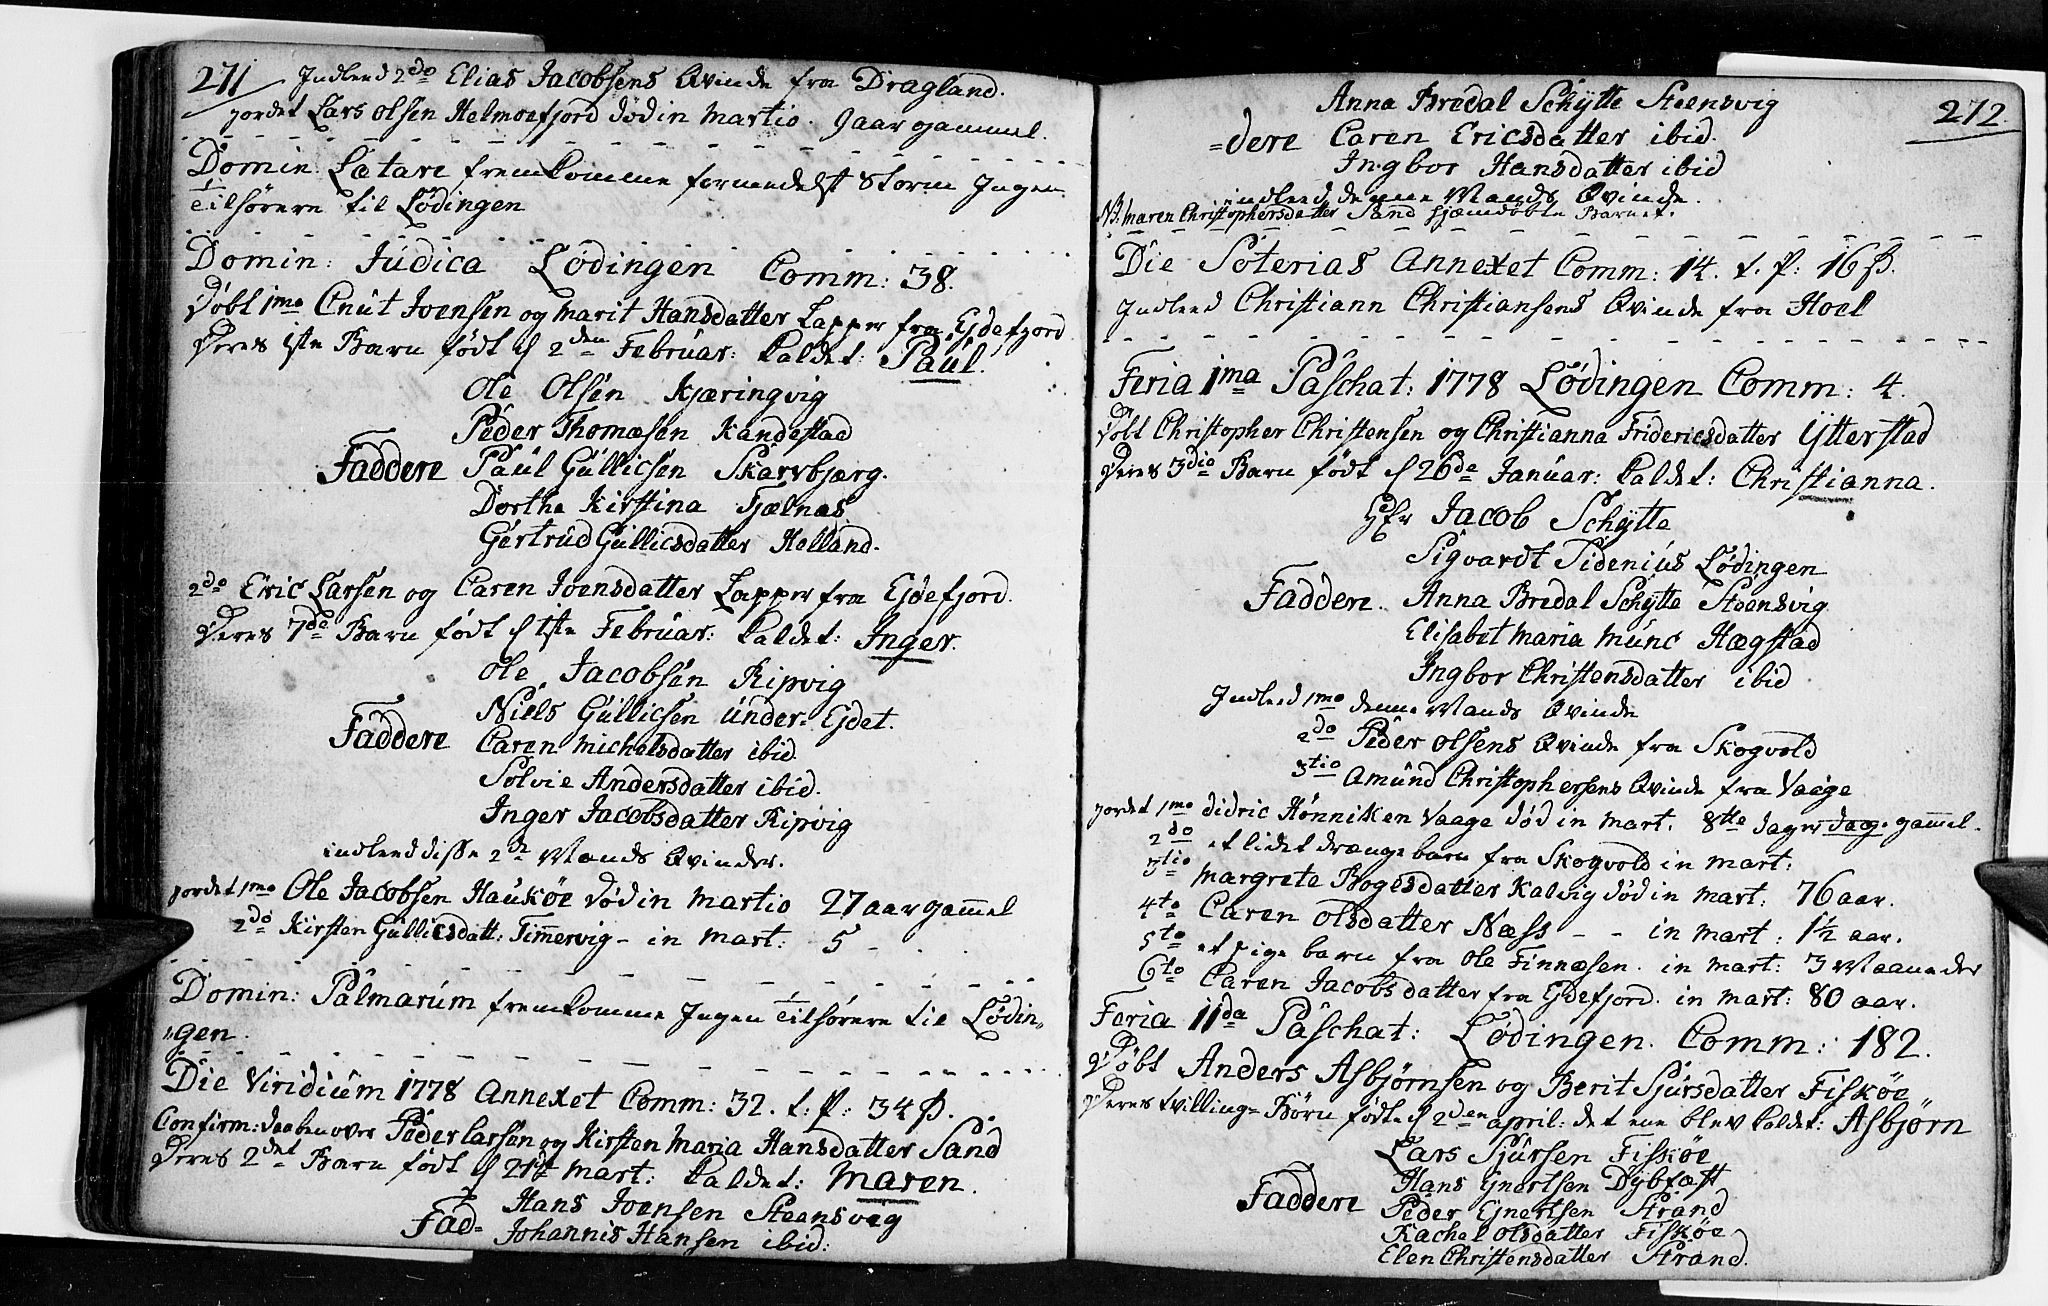 271
Indleed 2do Elias Jacobsens Qvinde fra Dragland.
jordet Lars Olsen Helmoefjord død in Martio. 9 aar gammel.
Domin: Lætare fremkomme formedelst Storm Ingen
Tilhørere til Lødingen
Domin: Judica Lødingen Comm: 38.
Døbt 1mo Cnut Joensen og Marit Hansdatter Lapper fra Ejdefjord
Deres 1ste Barn født d 2den Februar: kaldet: Paul.
Ole Olsen Kjæringvig
Peder Thomæsen Kandestad
Faddere Paul Gullicsen Skarvbjærg.
Dorthe Kirstina Fjælnæs
Gertrud Gullicsdatter Holland.
2do Eric Larsen og Caren Joensdatter Lapper fra Ejdefjord.
Deres 7de Barn født d 1ste Februar: kaldet: Inger.
Ole Jacobsen Ripvig
Niels Gullicsen under Ejdet.
Faddere Caren Michelsdatter ibid.
Solvie Andersdatter ibid.
Inger Jacobsdatter Ripvig
indleed disse 2de Mænds Qvinder.
jordet 1mo Ole Jacobsen Haukøe død in Martio 27 aar gammel
2do Kirsten Gullicsdatt: Timmervig - in Mart: 5 -
Domin: Palmarum fremkomme Ingen Tilhørere til Lødin-
gen.
Die Viridium 1778 Annexet Comm: 32. t. p: 34 ß.
Confirm: daaben over Peder Larsen og Kirsten Maria Hansdatter Sand
Deres 2det Barn født d 21de Mart: kaldet: Maren.
Hans Joensen Steensvig
Fad= Johannis Hansen ibid:
272.
Anna Bredal Schytte Steensvig
=dere Caren Ericsdatter ibid.
Ingbor Hansdatter ibid
indleed denne Mands Qvinde.
NB. Maren Christophersdatter Sand hjemdøbte Barnet.
Die Soterias Annexet Comm: 14. t. p: 16 ß.
Indleed Christiann Christiansens Qvinde fra Hoel
Feria 1ma Paschat: 1778 Lødingen Comm: 4.
Døbt Christopher Christensen og Christianna Fridericsdatter Ytterstad
Deres 3die Barn født d 26de Januar: kaldet: Christianna.
Hfr Jacob Schytte
Sigvardt Sidenius Lødingen
Faddere. Anna Bredal Schytte Steensvig
Elisabet Maria Munc Hægstad
Ingbor Christensdatter ibid
Indleed 1mo denne Mands Qvinde
2do Peder Olsens Qvinde fra Skogvold
3tio Amund Christophersens Qvinde fra Vaage
jordet 1mo Didric Hønniken Vaage død in Mart. 8tte dages dag. gammel.
2do et lidet drænge barn fra Skogvold in Mart:
3tio Margrete Bogesdatter Kalvig død in Mart: 76 aar.
4to Caren Olsdatter Næss - - in Mart: 1½ aar.
5to et pige barn fra Ole Finnæsen. in Mart: 3 Maaneder
6to Caren Jacobsdatter fra Ejdefjord. in Mart: 80 aar.
Feria IIda Paschat: Lødingen. Comm: 182.
Døbt Anders Asbjørnsen og Berit Sjursdatter Fiskøe
Deres tvilling= Børn fødte d 2den April: det ene blev kaldet: Asbjørn
Lars Sjursen Fiskøe
Hans Ejnertsen Dybfæst
Faddere Peder Ejnertsen Strand
Rachel Olsdatter Fiskøe
Elen Christensdatter Strand.